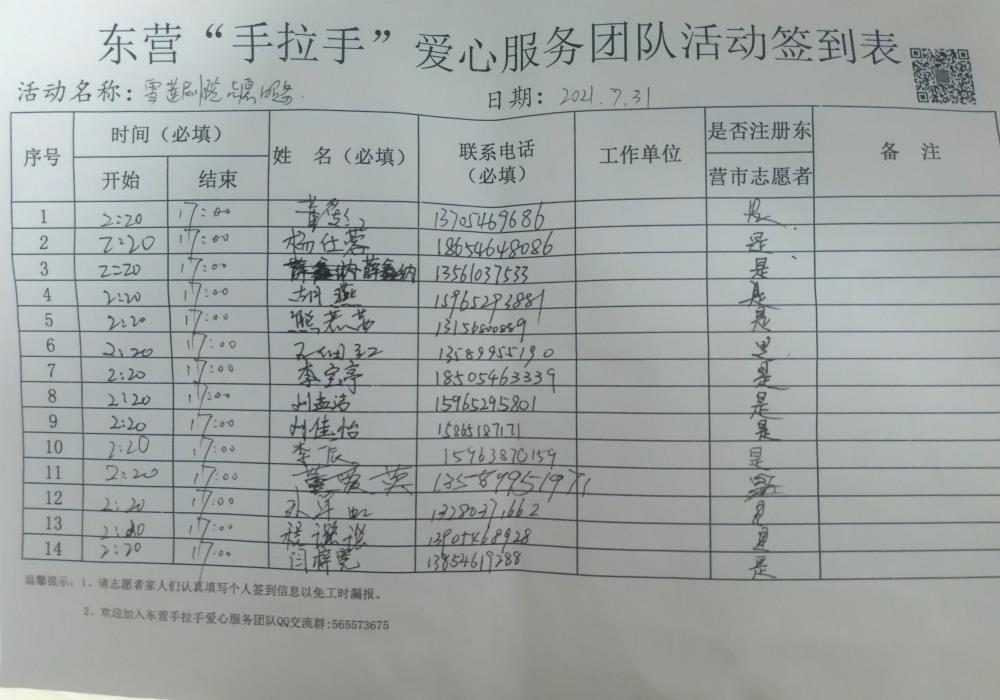 东营“手拉手”爱心服务团队活动签到表
活动名称：雪莲剧院志愿服务
日期：2021.7.31
序号 时间（必填） 姓 名（必填） 联系电话（必填） 工作单位 是否注册东营市志愿者 备 注
开始 结束
1 2:20 17:00 13705469686 是
2 2:20 17:00 杨仕蓉 18654648086 是
3 2:20 17:00 薛鑫纳 13561037533 是
4 2:20 17:00 胡燕 15965293881 是
5 2:20 17:00 熊 13156800889 是
6 2:20 17:00 13589955190 是
7 2:20 17:00 李宝亭 18505463339 是
8 2:20 17:00 刘孟洁 15965295801 是
9 2:20 17:00 刘佳怡 15865187171 是
10 2:20 17:00 李辰 15963870159 是
11 2:20 17:00 董爱英 13589951971 是
12 2:20 17:00 13280371662 是
13 2:20 17:00 程 13905468928 是
14 2:20 17:00 闫 13854619288 是
温馨提示：1、请志愿者家人们认真填写个人签到信息以免工时漏报。
2、欢迎加入东营手拉手爱心服务团队QQ交流群:565573675